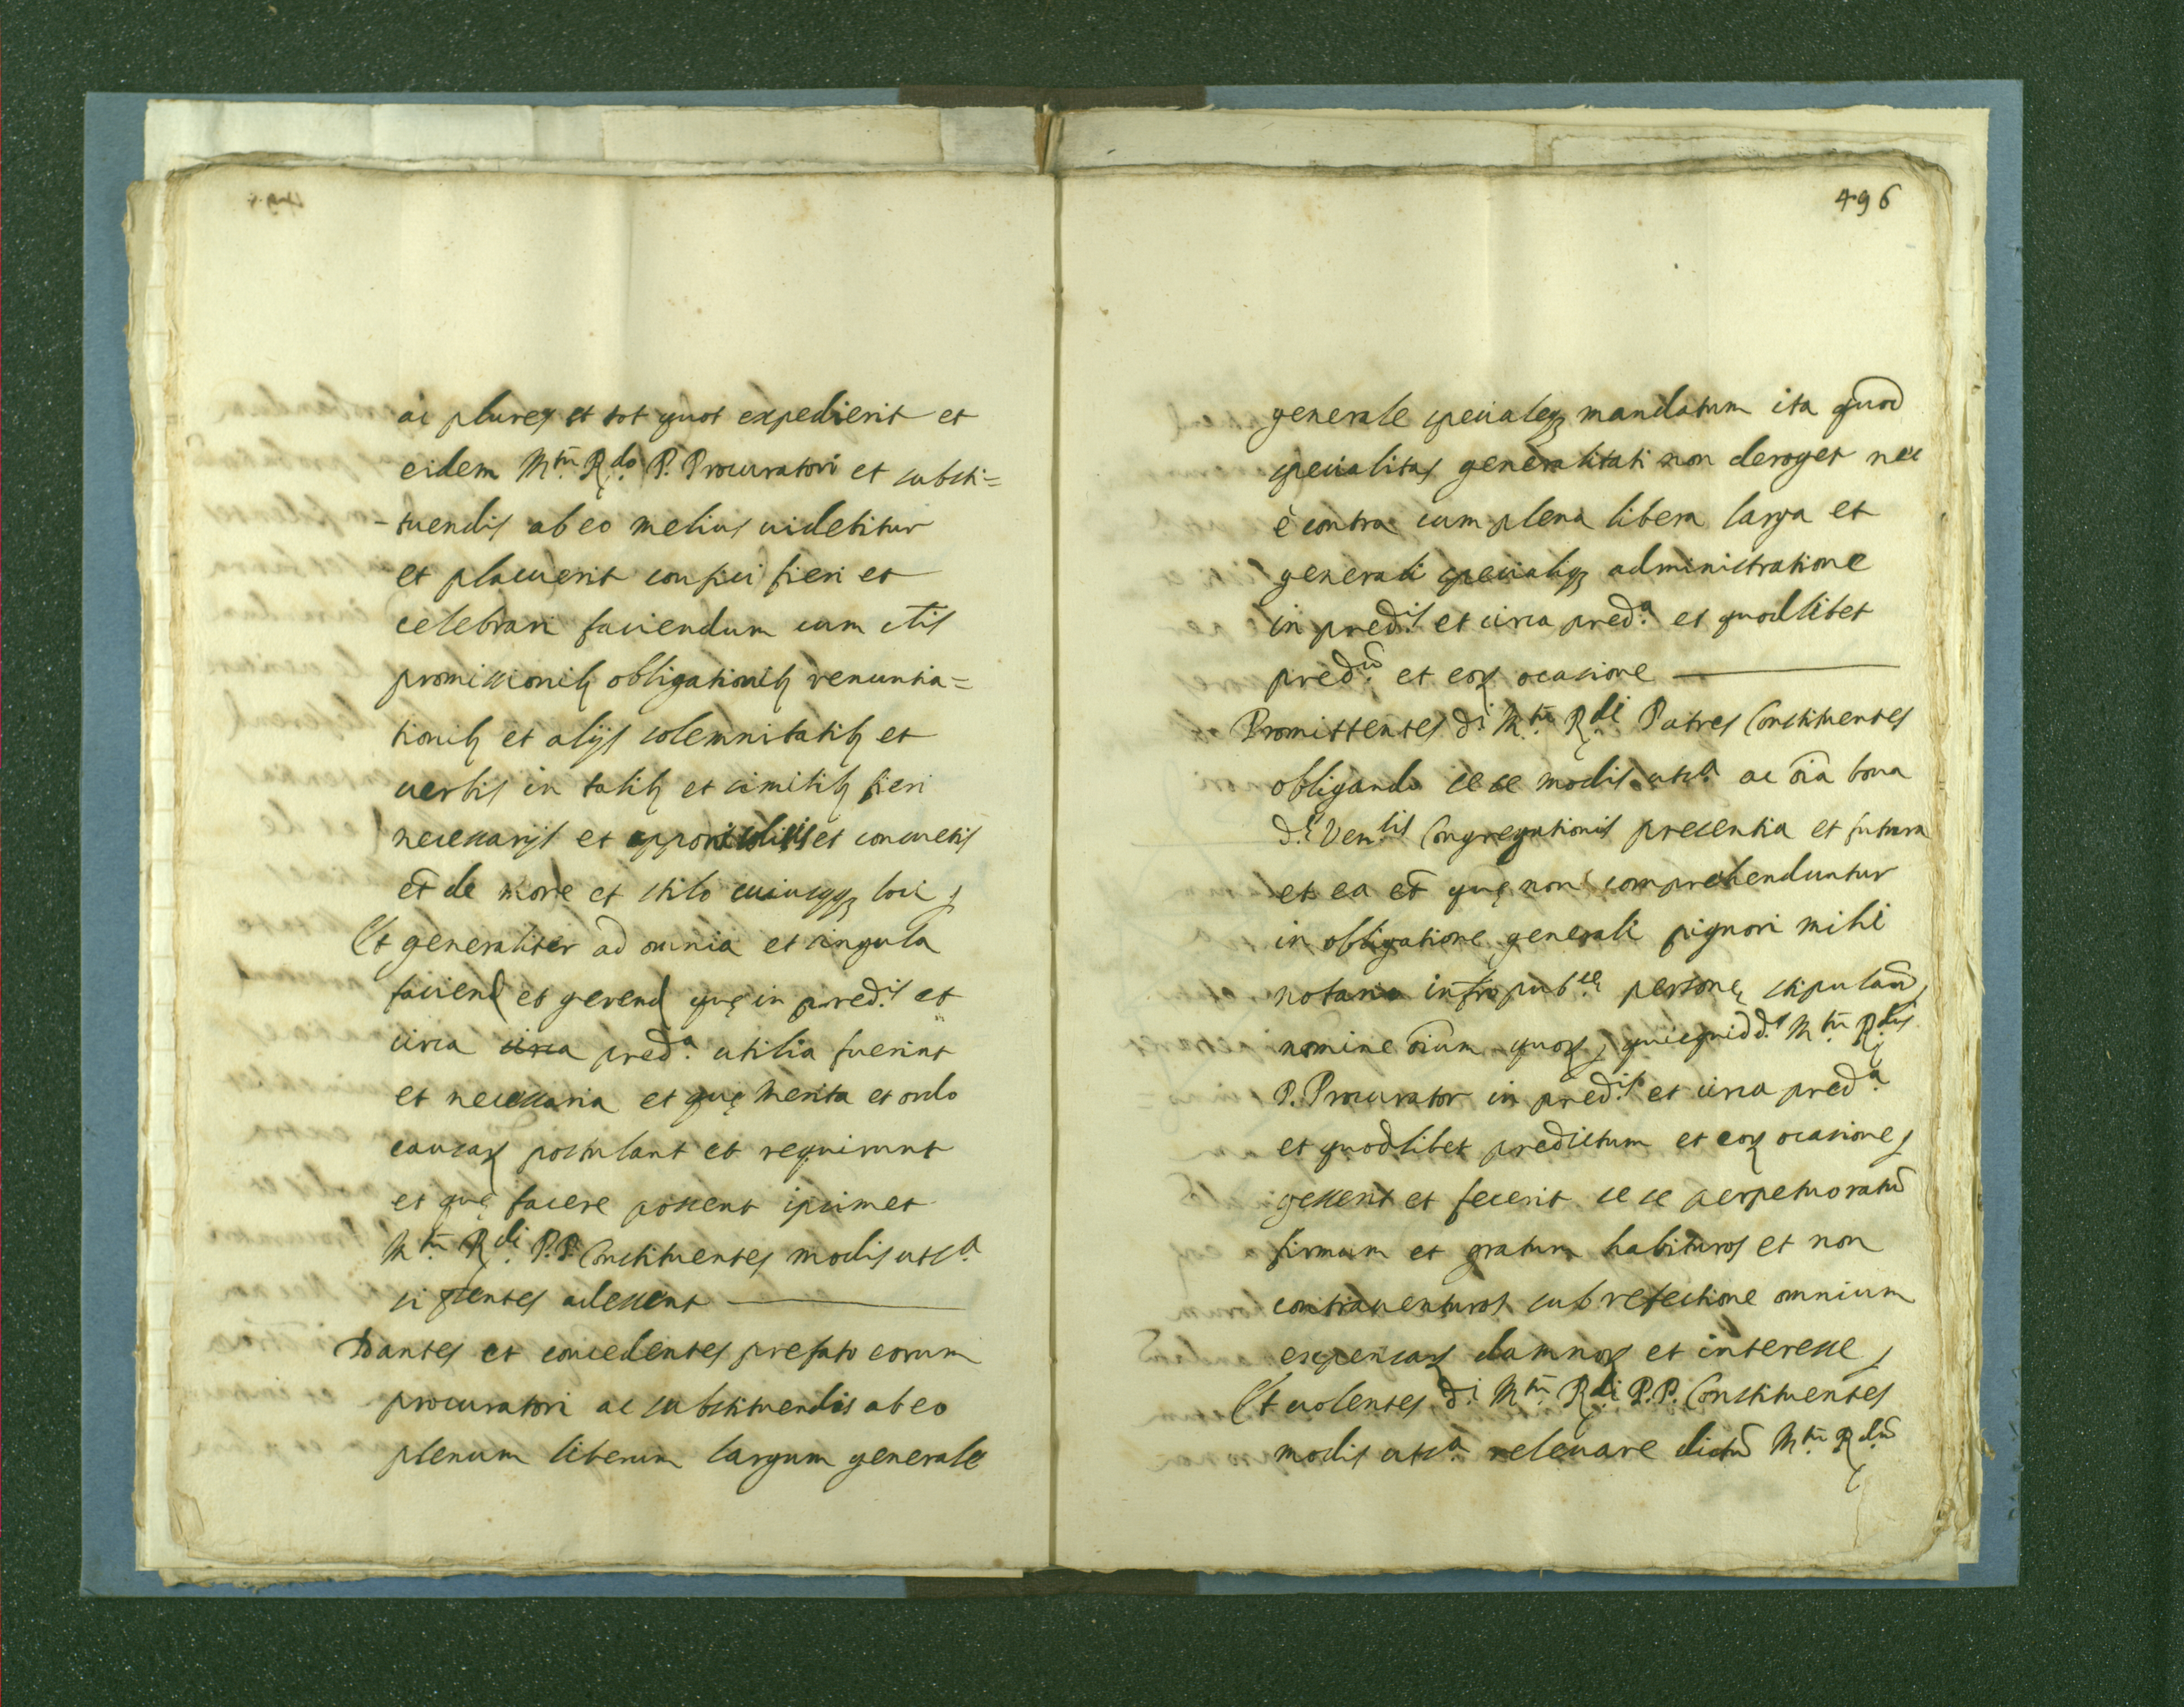 ac plures et tot quot expedierit et
eidem M.^to R.^do P. Procuratori et substi=
-tuendis ab eo melius uidebitur
et placuerit confici fieri et
celebrari faciendum cum
promissionib₉ obligationib₉ renuntia=
tionib₉ et alijs solemnitatib₉ et
uerbis in talib₉ et similib₉ fieri
necessarijs et solitis et consuetis
et̃ de more et stilo cuiuscqꝫ loci,
Et generaliter ad omnia et singula
faciend et gerend quę in pred.^is et
circa circa pred.^a utilia fuerint
et necessaria et quę merita et ordo
causaꝝ postulant et requirunt
et quę facere possent ipsimet
M.^to R.^di P.P. Constituentes modis ut s.^a
si p̃sentes adessent —
Dantes et concedentes prefato eorum
procuratori ac substituendis ab eo
plenum liberum largum generale
496
generale specialeqꝫ mandatum ita quod
specialitas generalitati non deroget nec
è contra cum plena libera larga et
generali specialiqꝫ administratione
in pred.^is et circa pred.^a et quodlibet
pred.^ũ et eoꝝ ocasione —
Promittentes d.^i M.^to R.^di Patres Constituentes
obligando se se modis ut s.^a ac õia bona
d.^ę Ven.^lis Congregationis presentia et futura
et ea et̃ quę non comprehenduntur
in obligatione generali pignori mihi
notario infrō pub.^cę personę stipulañ,
nomine õium quoꝝ, quicquid d.^s M.^to R.^dus
P. Procurator in pred.^is et circa pred.^a
et quodlibet predictum et eoꝝ ocasione,
gesserit et fecerit se se perpetuo ratũ
firmum et gratum habituros et non
contrauenturos sub refectione omnium
expensaꝝ damnoꝝ et interesse,
Et uolentes d.^i M.^to R.^di P.P. Constituentes
modis ut s.^a releuare dictũ M.^to R.^dũ